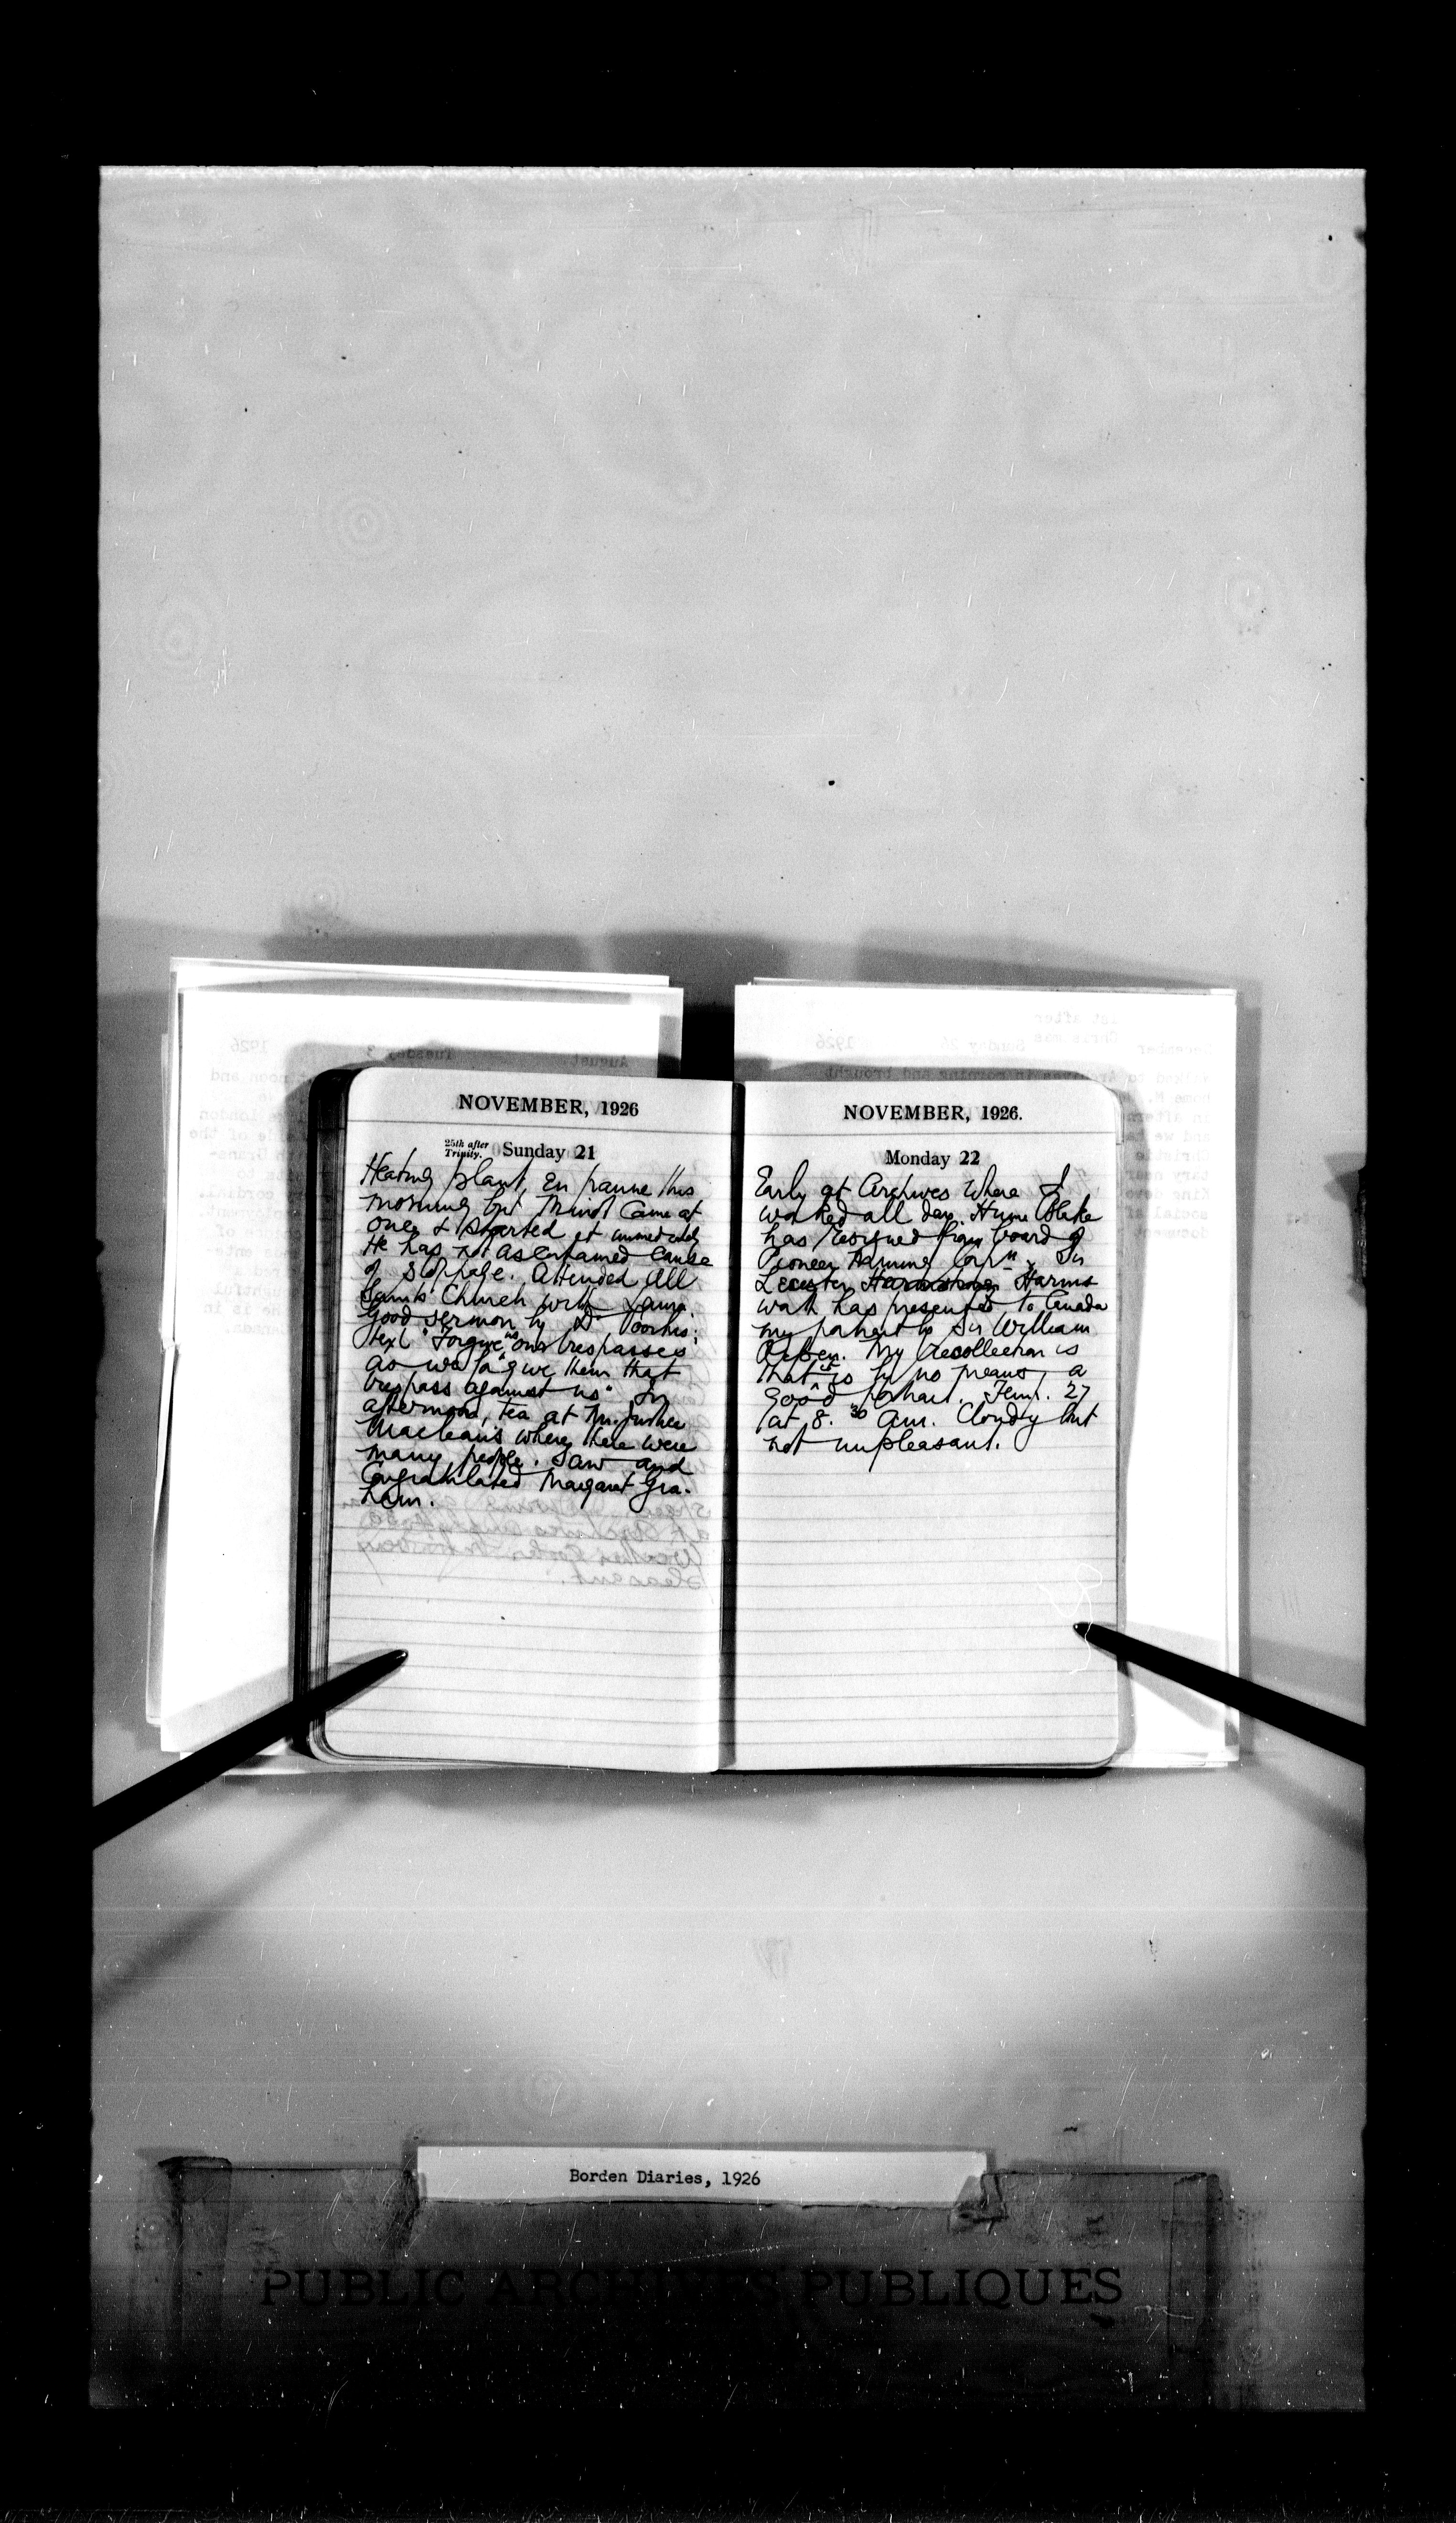 NOVEMBER, 1926
25th after Trinity. Sunday 21
Heating plant, en panne this
morning but Minot came at
once & started it immediately
He has not ascertained cause
of stoppage. Attended All
Saints' Church with Laura.
Good sermon by Dr Voorhis;
text "Forgive us our trespasses
as we forgive them that
trespass against us" In
afternoon, tea at Mr. Justice
Maclean's where there were
many people. Saw and
Congratulated Margaret Gra-
ham.
NOVEMBER, 1926.
Monday 22
Early at Archives where I
worked all day. Hume Blake
has resigned from board of
Pioneer Farming Corpn. Sir
Leicester Harmsworth Harms
worth has presented to Canada
my portrait by Sir William
Orpen. My recollection is
that it is by no means a
good portrait. Temp. 27
at 8.30 Am. Cloudy but
not unpleasant.
Borden Diaries, 1926
PUBLIC ARCHIVES PUBLIQUES